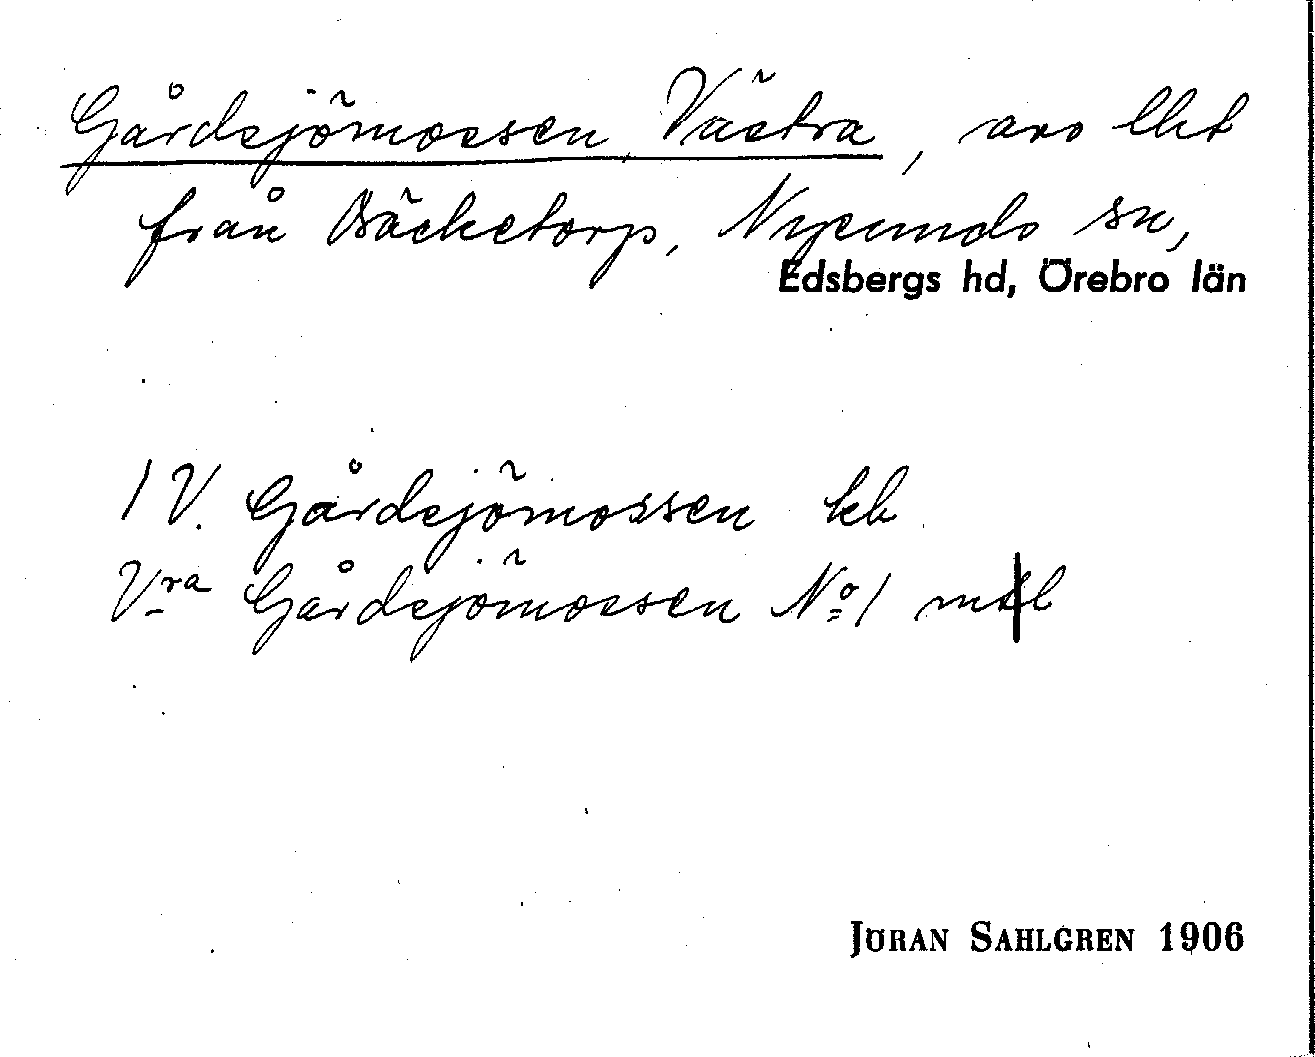 Gårdsjömossen, Västra, avs lht
från Bäcketorp, Nysunds sn,
Edsbergs hd, Örebro län
1 V. Gårdsjömossen kb
Vra Gårdsjömossen No 1 mtl
JÖRAN SAHLGREN 1906